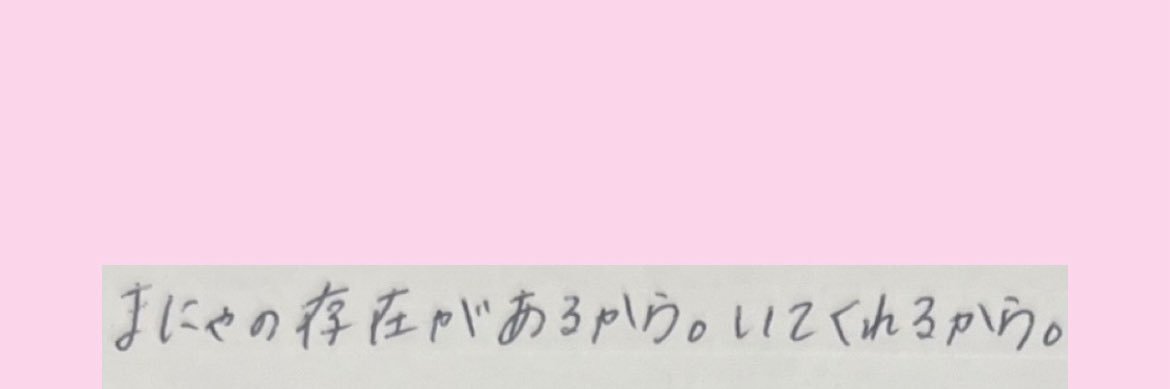 まにゃの存在があるから。いてくれるから。